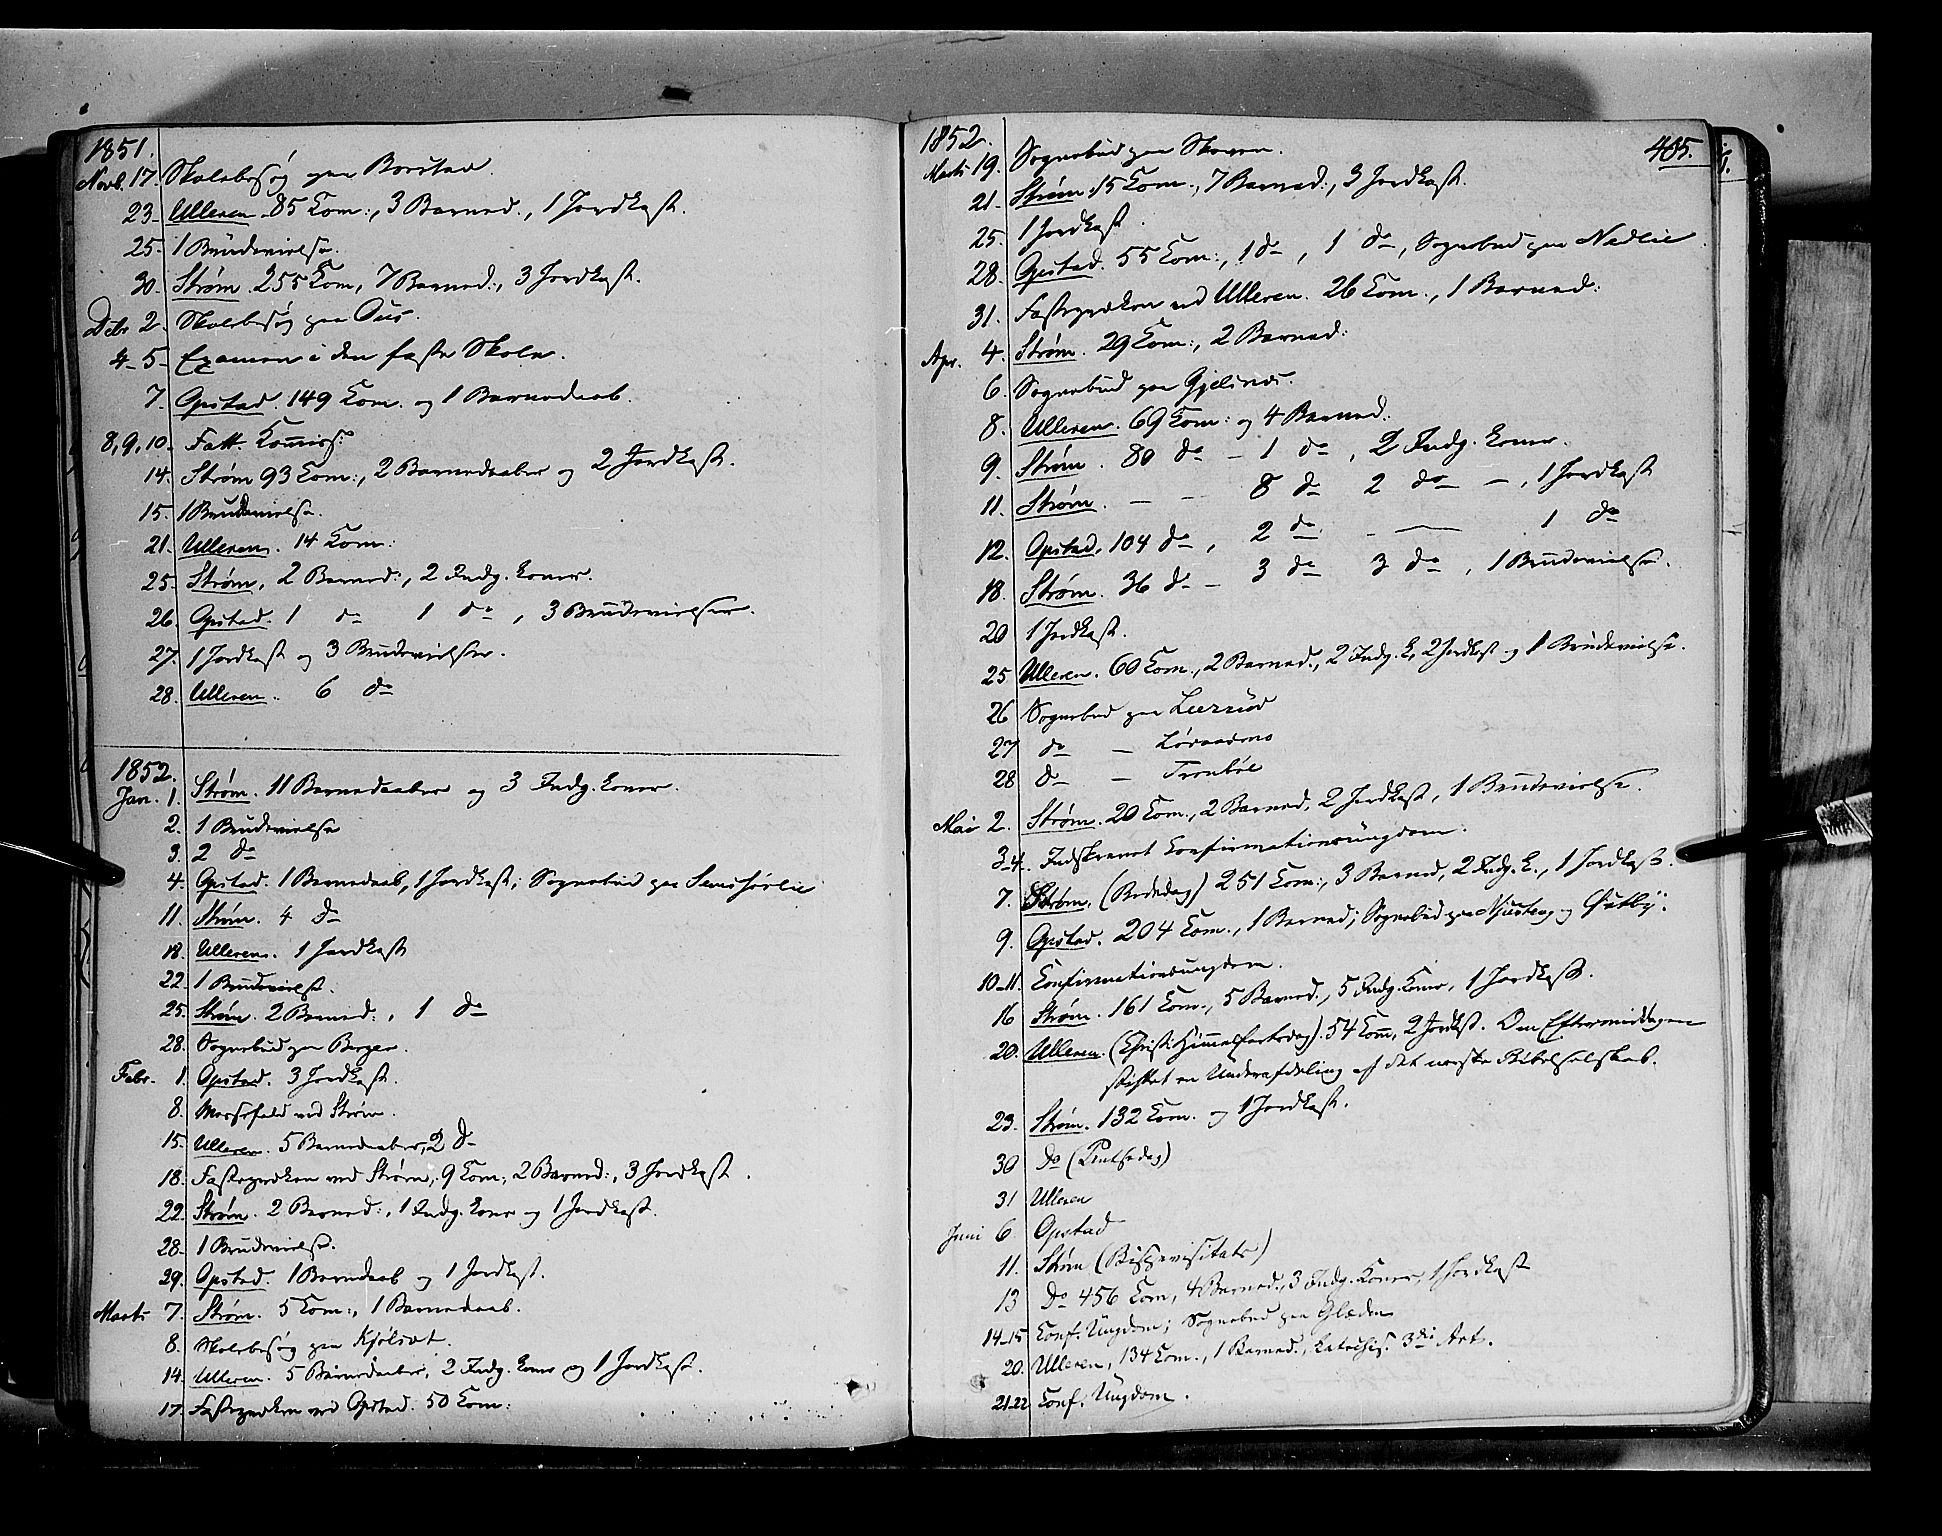 1851.
Novb. 17. Skolebesøg paa Borstad.
23. Ulleren. 85 Com:, 3 Barned., 1 Jordkast.
25. 1 Brudevielse.
30. Strøm. 255 Com, 7 Barned:, 3 Jordkast.
Debr 2. Skolebesøg paa Ous.
4-5 Examen i den faste Skole.
7. Opstad. 149 Com. og 1 Barnedaab.
8, 9, 10. Fatt. Commiss:
14. Strøm 93 Com:, 2 Barnedaaber og 2 Jordkast.
15. 1 Brudevielse.
21. Ulleren. 14 Com:
25. Strøm, 2 Barned:, 2 Indg. Koner.
26. Opstad. 1 do 1 do, 3 Brudevielser.
27. 1 Jordkast og 3 Brudevielser.
28. Ulleren. 6 do
1852.
Jan. 1. Strøm. 11 Barnedaaber og 3 Indg. Koner.
2. 1 Brudevielse
3. 2 do
4. Opstad. 1 Barnedaab, 1 Jordkast; Sognebud paa
11. Strøm. 4 do
18. Ulleren. 1 Jordkast
22. 1 Brudevielse.
25. Strøm. 2 Barned:, 1 do
28. Sognebud paa Berger.
Febr. 1. Opstad. 3 Jordkast.
8. Messefald ved Strøm.
15. Ulleren. 5 Barnedaaber, 2 do
18. Fasteprædiken ved Strøm, 9 Com, 2 Barned:, 3 Jordkast.
22. Strøm. 2 Barned:, 1 Indg. Kone og 1 Jordkast.
28. 1 Brudevielse.
29. Opstad. 1 Barnedaab og 1 Jordkast.
Marts 7. Strøm. 5 Com:, 1 Barnedaab.
8. Skolebesøg paa Kjølsæt.
14. Ulleren. 5 Barnedaaber, 2 Indg. Koner og 1 Jordkast.
17. Fasteprædiken ved Opstad. 50 Com:
1852.
405.
Marts 19. Sognebud paa Skoven.
21. Strøm 15 Com., 7 Barned:, 3 Jordkast.
25. 1 Jordkast
28. Opstad. 55 Com:, 1 do, 1 do, Sognebud paa Nedlie.
31. Fasteprædiken ved Ulleren. 26 Com., 1 Barned:
Apr. 4. Strøm. 29 Com:, 2 Barned:
6. Sognebud paa Gjelsnæs.
8. Ulleren. 69 Com: og 4 Barned.
9. Strøm. 80 do - 1 do, 2 Indg. Koner.
11. Strøm. - - 8 do 2 do -, 1 Jordkast
12. Opstad, 104 do, 2 do - 1 do
18. Strøm. 36 do - 3 do 3 do, 1 Brudevielse.
20 1 Jordkast.
25 Ulleren. 60 Com., 2 Barned., 2 Indg. K, 2 Jordkast og 1 Brudevielse.
26 Sognebud paa
27 do -
28 do - Tronbøl
Mai 2. Strøm. 20 Com., 2 Barned, 2 Jordkast, 1 Brudevielse.
3-4. Indskrevet Confirmationsungdom.
7. Strøm. (Bededag) 251 Com:, 3 Barned, 2 Indg. K., 1 Jordkast.
9. Opstad. 204 Com., 1 Barned; Sognebud paa og
10-11. Confirmationsungdom.
16 Strøm. 161 Com., 5 Barned., 5 Indg. Koner, 1 Jordkast.
20. Ulleren. (Christi Himmelfartsdag). 54 Com, 2 Jordkst. Om Eftermiddagen
stiftet en Underafdeling af det norske Bibelselskab.
23. Strøm. 132 Com. og 1 Jordkast.
30 do (Pintsedag)
31 Ulleren
Juni 6 Opstad
11. Strøm (Bispevisitats)
13 Do 456 Com, 4 Barned., 3 Indg. Koner, 1 Jordkast
14-15 Conf. Ungdom; Sognebud paa Glæden
20. Ulleren, 134 Com., 1 Barned., Catechis. 3die Art.
21-22 Conf. Ungdom.